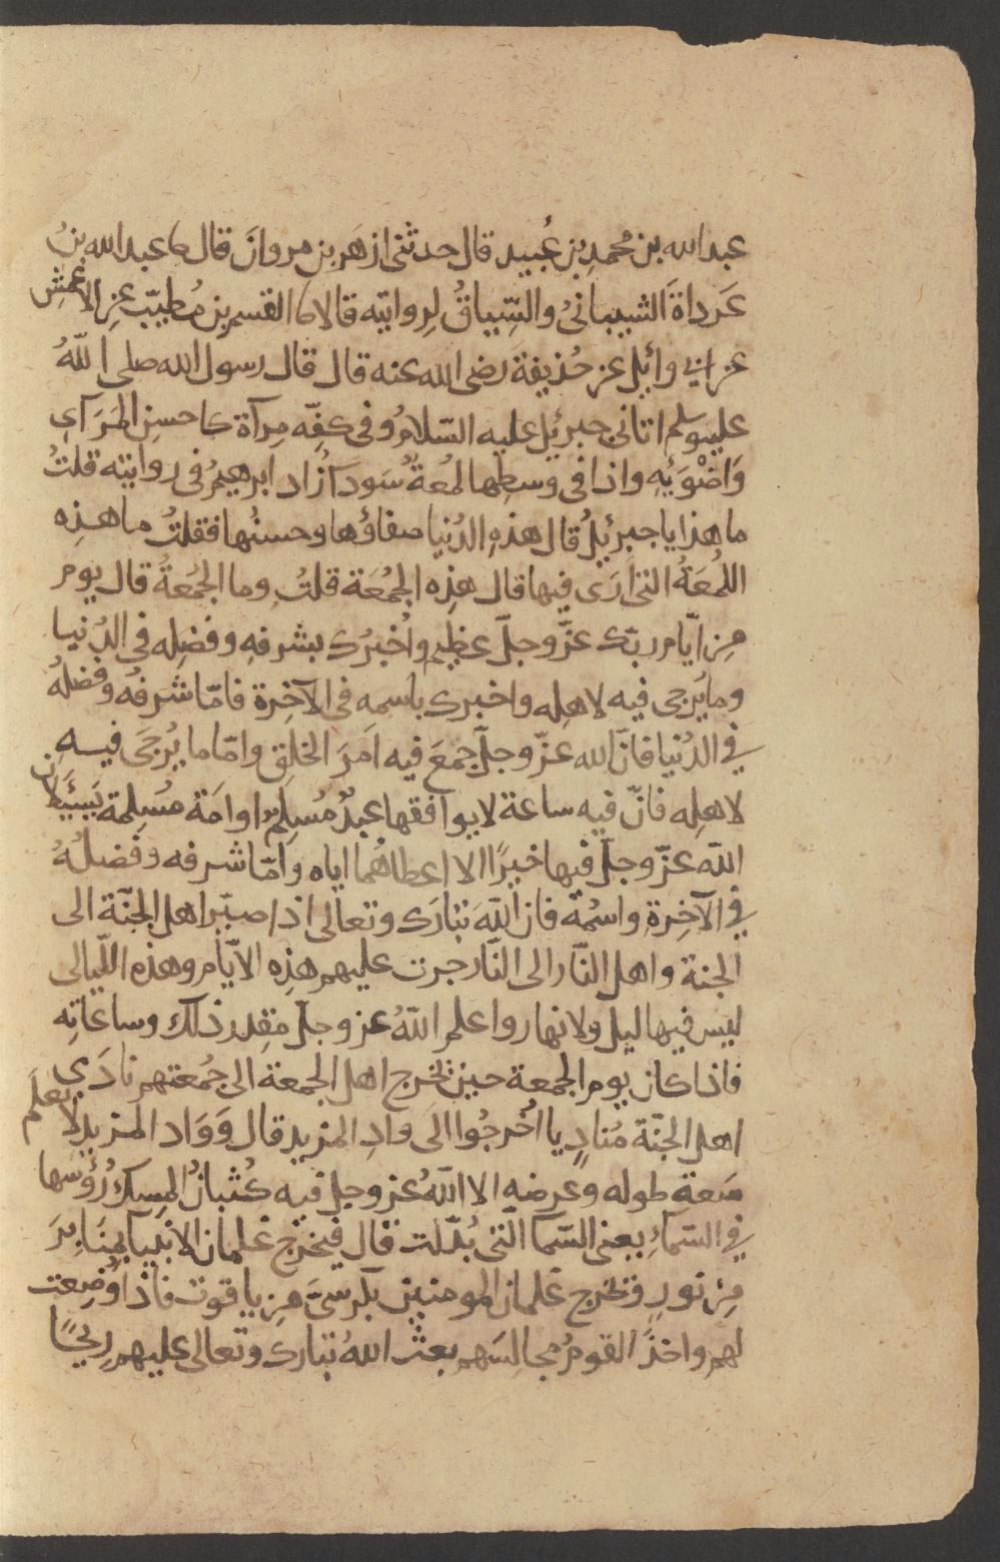 عبد الله بن محمدِ بنِ عُبيد قال حدثنى ازهَر بن مروانَ قال نا عبد الله بنُ
عَرداةَ الشيبانىُ والسِّياقُ لِروايتِه قالا نا القسم بن مُطيَّب عنِ الاعمشِ
عن ابي وائِلٍ عن حُذيفة رضى الله عنه قال قال رسول الله صلى اللّٰهُ
عليه وسلم اتانى جبرئيل عليه السّلامُ وفى كفِّه مِرآة كاحسنِ المَرَآى
وَاضْوَئِهِ واذا فى وسطِها لمُعةٌ سَودآ زاد ابرهيمُ فى روايته قلتُ
ما هذا يا جبرئيلُ قال هذهِ الدُنيا صفاؤها وحسنُها فقلتُ ما هذِه
اللُمعَةُ التى ارَى فيها قال هذِه الجمُعَة قلتُ وما الجمُعةُ قال يوم
مِن ايّام ربّك عزّ وجلّ عظيم واُخبرُك بشرفِهِ وفضلِه فى الدُنيا
وما يُرجى فيه لاهلِه واخبرك باسمه فى الآخِرة فامّا شرفُه وفضلهُ
في الدُنيا فانّ الله عزّ وجلّ جمعَ فيه امَرَ الخلقِ وامّا ما يُرجَى فيه
لاهلِه فانّ فيه ساعة لا يوافقها عبدٌ مُسلِمٌ او امَة مُسلِمة يَسئَلان
اللّه عزّ وجلّ فيها خيرًا الا اعطاهُما اياه وامّا شرفه وفضلُهُ
في الآخِرةِ واسمُه فان اللّٰهَ تبارَك وتعالى اذا صيّر اهل الجنّة الى
الجنة واهل النّار الى النّار جرت عليهم هذِه الايّام وهذه اللّيالى
ليس فيها ليل ولا نهار واعلم اللّٰهُ عز وجلّ مقِدر ذلك وساعاتِه
فاذا كان يوم الجمعة حين تخرج اهل الجمعة الى جمُعتهم نادَى
اهل الجنّة مُنادٍ يا اخُرجُوا الَى وادِ المزيد قال وَوَاد المزيد لا يعلَم
سَعة طوله وعرضه الا اللّٰهُ عز وجل فيه كُثبانُ المِسكُ رُؤسها
في السّماءِ يعنى السّما الَتى بُدّلت قال فيخرج غلمان الانبيا بمنَابِرَ
مِن نورٍ وتخرج غلمان المومنين بكرسىّ مِن ياقوت فاذا وُضِعت
لهم واخذَ القومُ مجالسَهم بعث اللهُ تبارك وتعالى عليهم ريحًا